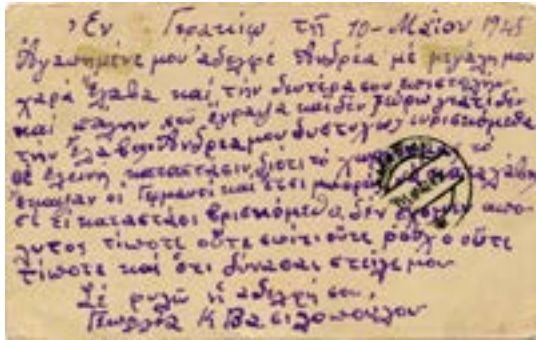 Ἐν Γερακίῳ τῇ 10-Μαΐου 1945
Ἀγαπημένε μου ἀδελφέ Ἀνδρέα μέ μεγάλη μου
χαρά ἔλαβα καί τήν δευτέρα σου ἐπιστολήν
καί πάλην σοῦ ἔγραψα καί δέν ξεύρω γιατί δέν
τήν ἔλαβες Ἀνδρέα μου δυστυχῶς εὑρισκόμεθα
σέ ἐλεινή κατάστασιν, διότι τό τό
ἔκαψαν οἱ Γερμανοί καί ἔτσι μπορεῖς νά καταλάβης
σέ τί κατάστασι βρισκόμεθα, δέν ἔχομεν ἀπο-
λύτος τίποτε οὔτε σπίτι οὔτε ροῦχο οὔτε
τίποτε καί ὅτι δύνασαι στεῖλε μου
Σέ φιλῶ ἡ ἀδελφή σου,
Γεωργία Κ Βασιλοπούλου